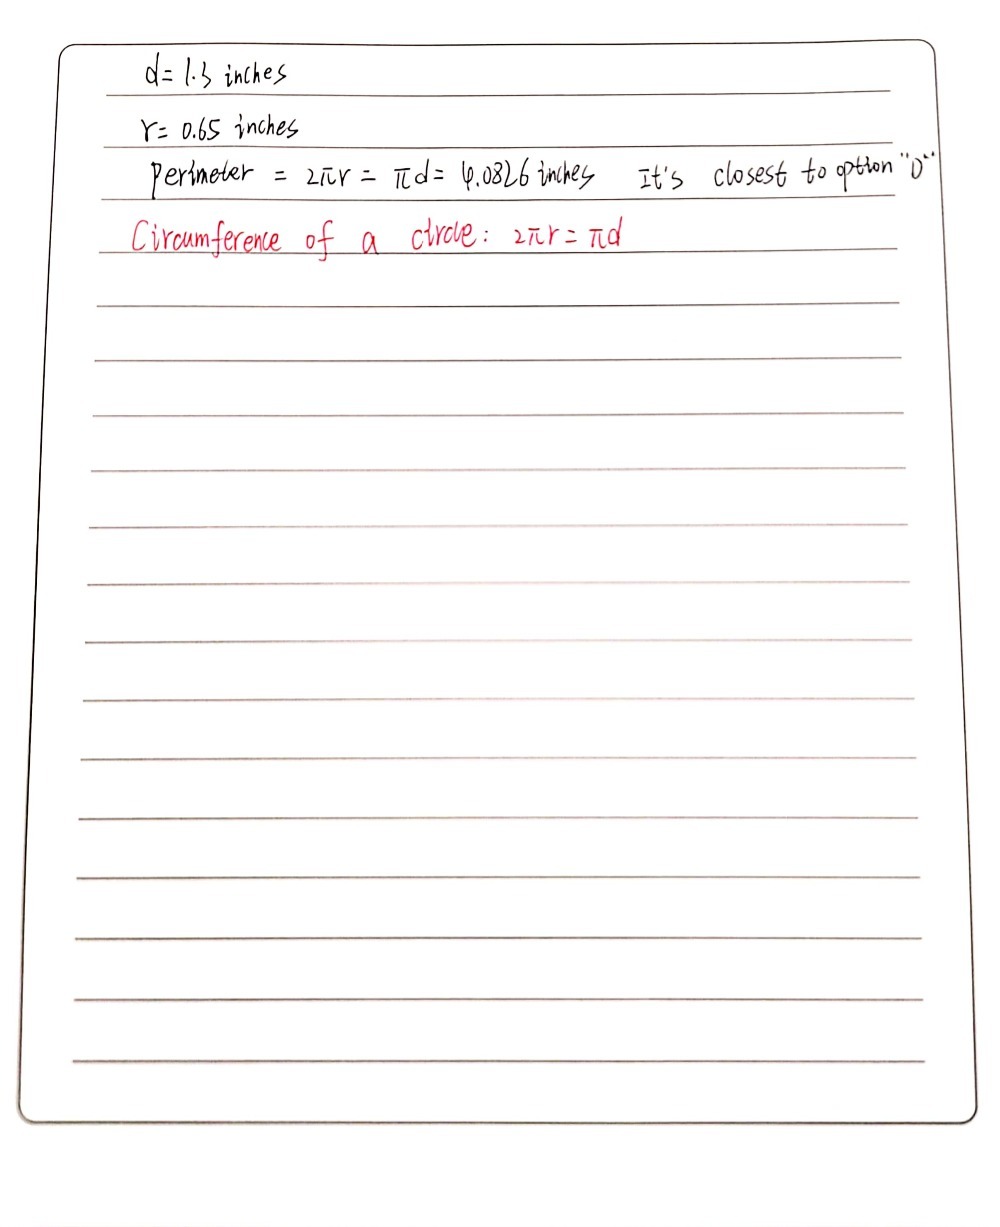 d= 1.3 inches
r= 0.65 inches
perimeter = 2πr = πd= 4.0826 inches It's closest to option "D"
Circumference of a circle: 2πr = πd